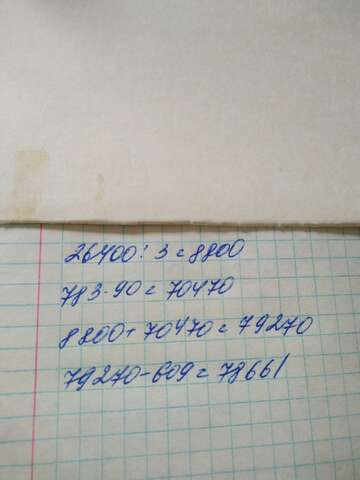 26400 : 3 = 8800
783 · 90 = 70470
8800 + 70470 = 79270
79270 - 609 = 78661